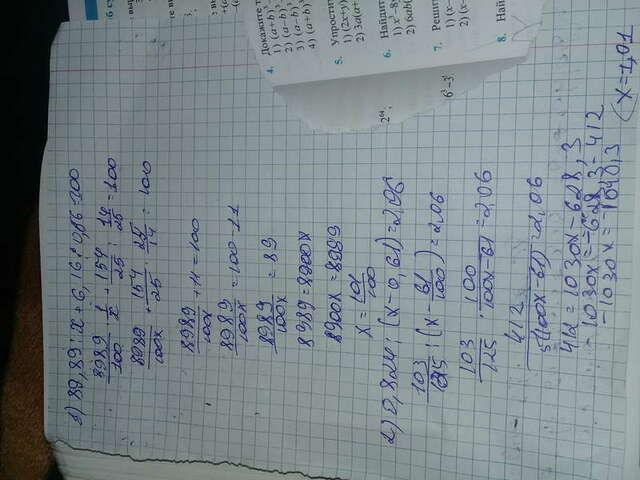 1) 89,89 : x + 6,16 : 0,56 = 100
8989/100 · 1/x + 154/25 : 14/25 = 100
8989/100x + 154/25 · 25/14 = 100
8989/100x + 11 = 100
8989/100x = 100 - 11
8989/100x = 89
8989 = 8900x
8900x = 8989
x = 101/100
2) 0,824 : (x - 0,61) = 2,06
103/125 : (x - 61/100) = 2,06
103/125 · 100/100x-61 = 2,06
412/5(100x-61) = 2,06
412 = 1030x - 628,3
-1030x = -628,3 - 412
-1030x = -1040,3
x = 1,01
6 су
4. Докажите т
1) (a+b)³
2) (a-b)³
3) (a-b)³
4) (a+b)³
5. Упрости
1) (2x+y)
2) 3a(a+
2⁶⁴;
6. Найдит
1) x³-8y
2) 6ab(
6³-3³
7. Реши
1) (x-
2) (x-
8. Най